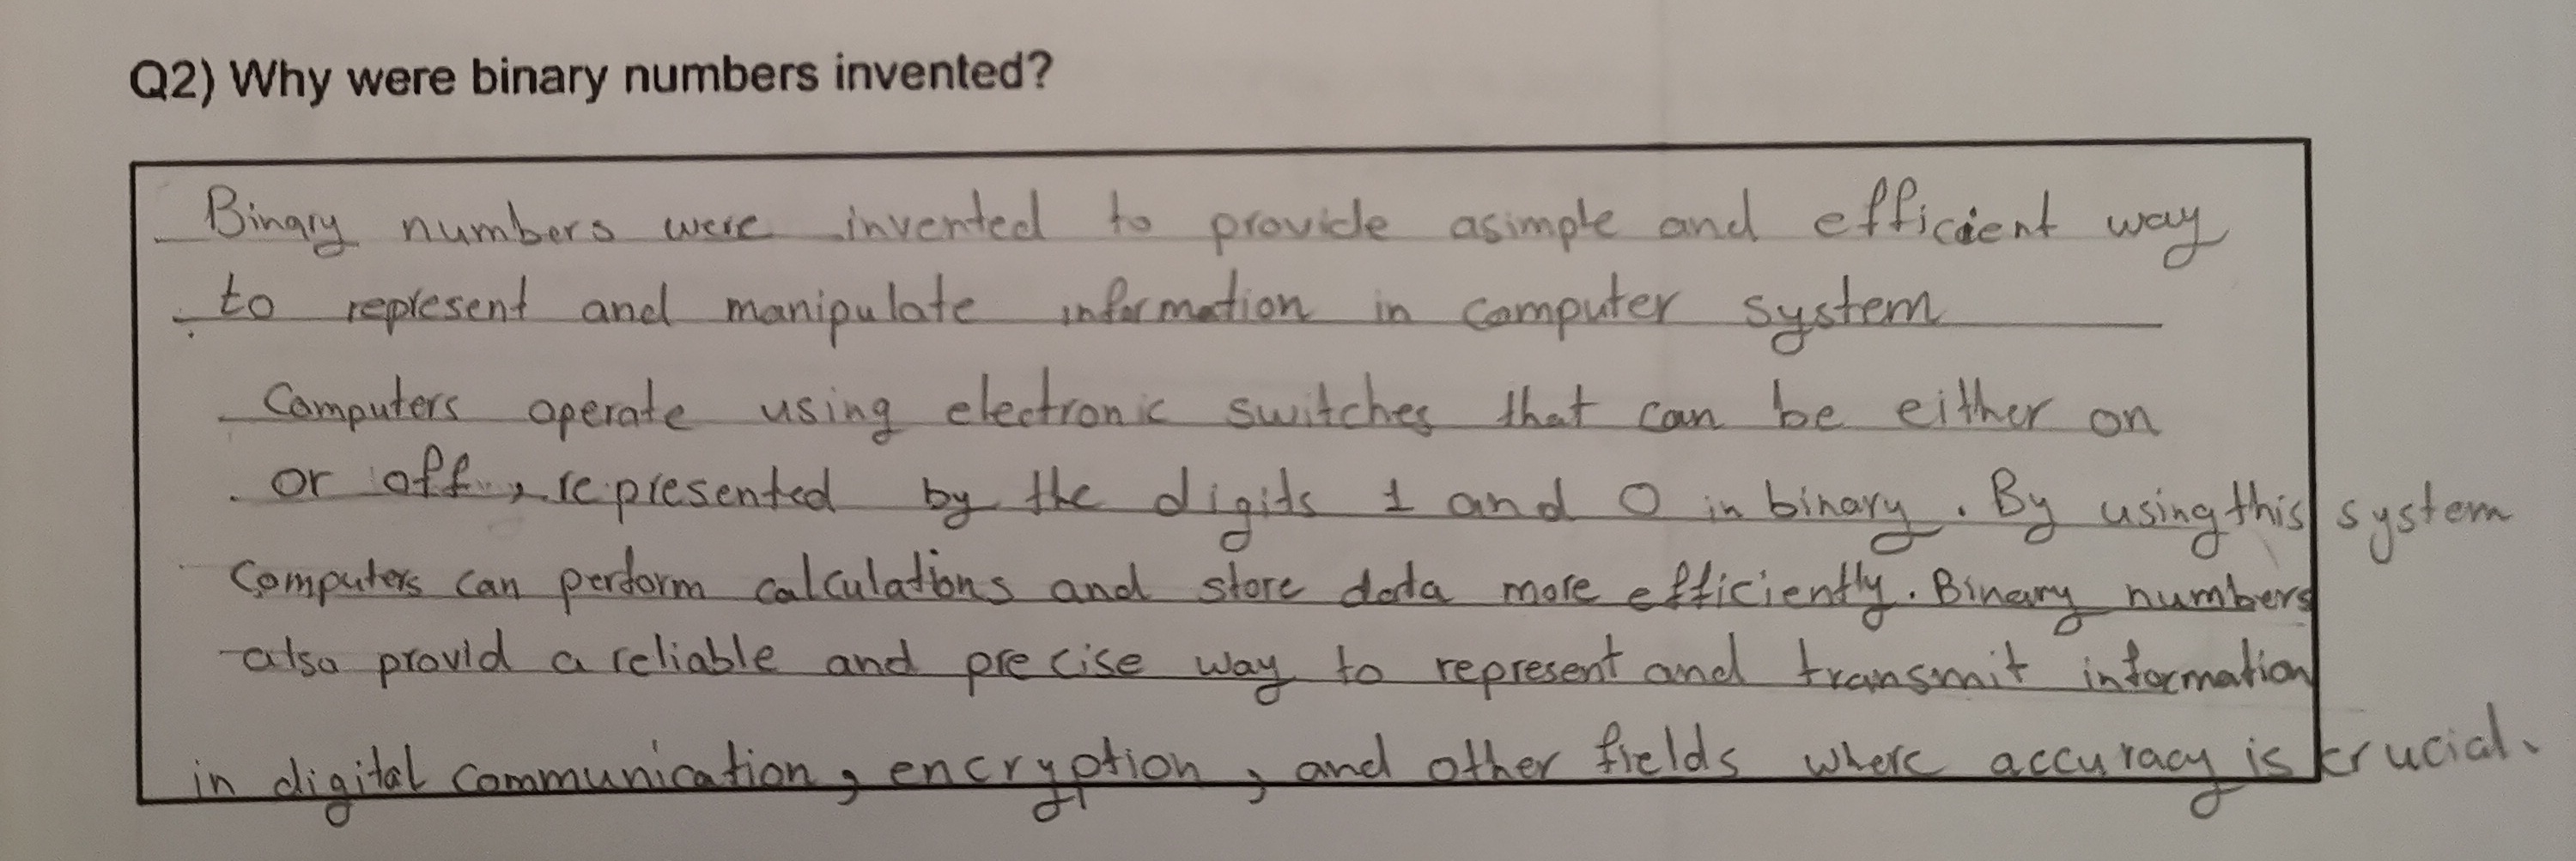 Q2) Why were binary numbers invented?
Binary numbers were invented to provide asimple and efficient way
to represent and manipulate information in computer system
Computers operate using electronic switches that can be either on
or off, represented by the digits 1 and 0 in binary. By using this system
Computers can perform calculations and store data more efficiently. Binary numbers
also provid a reliable and precise way to represent and transmit information
in digital communication, encryption, and other fields where accuracy is crucial.